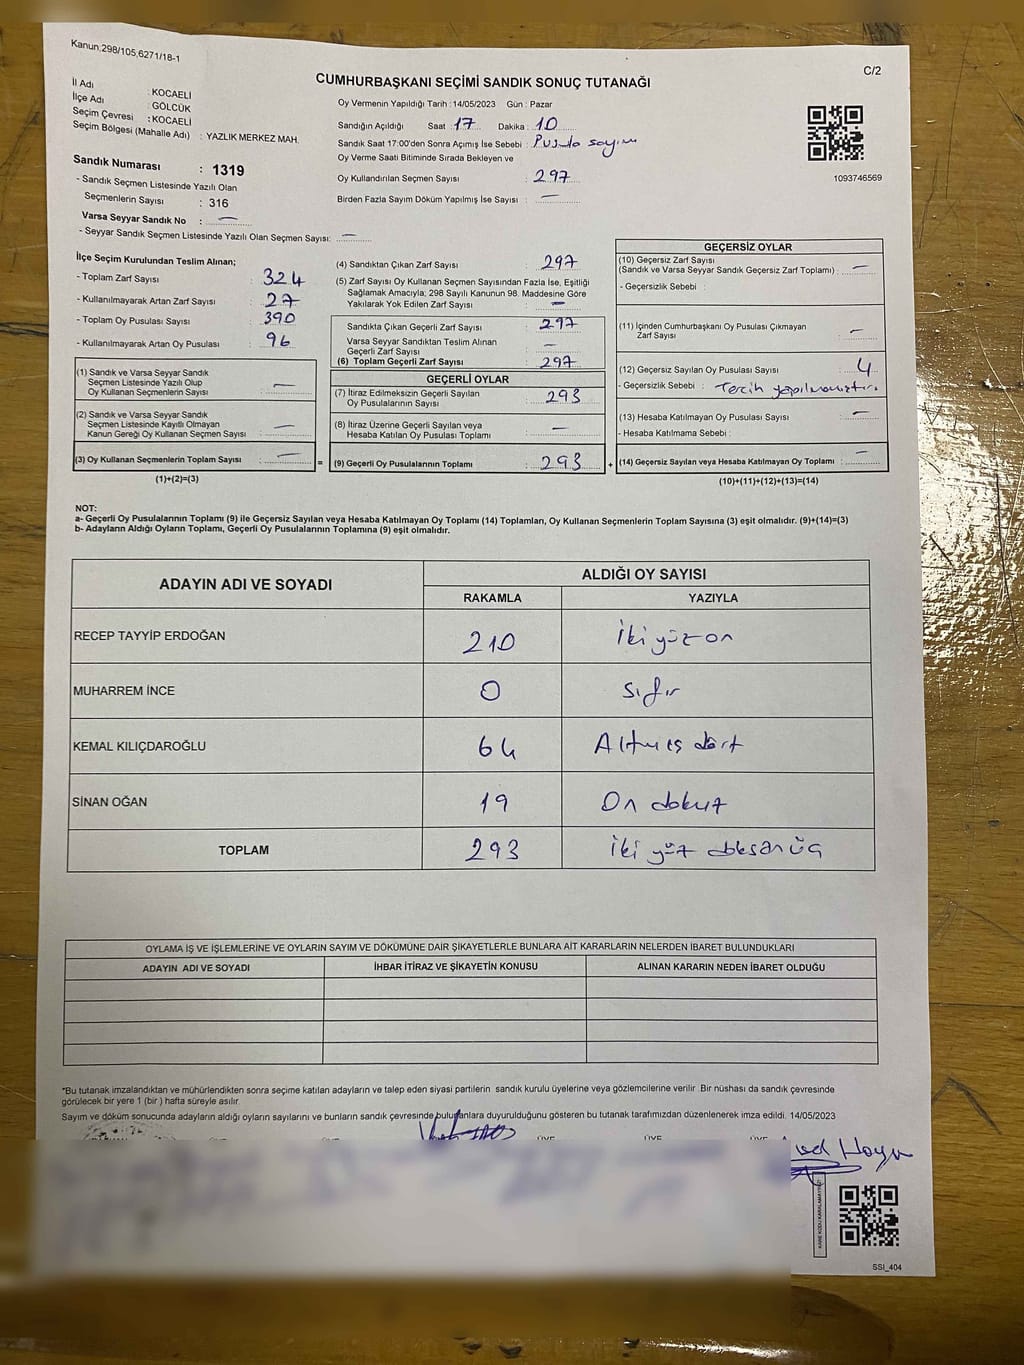 Kanun;298/105,6271/18-1
C/2
CUMHURBAŞKANI SEÇİMİ SANDIK SONUÇ TUTANAĞI
İl Adı : KOCAELİ
İlçe Adı : GÖLCÜK
Seçim Çevresi : KOCAELİ
Seçim Bölgesi (Mahalle Adı) : YAZLIK MERKEZ MAH.
Sandık Numarası : 1319
- Sandık Seçmen Listesinde Yazılı Olan
Seçmenlerin Sayısı : 316
Varsa Seyyar Sandık No : —
- Seyyar Sandık Seçmen Listesinde Yazılı Olan Seçmen Sayısı: —
Oy Vermenin Yapıldığı Tarih : 14/05/2023 Gün : Pazar
Sandığın Açıldığı Saat : 17 Dakika : 10
Sandık Saat 17:00'den Sonra Açımış İse Sebebi : Pusula sayım
Oy Verme Saati Bitiminde Sırada Bekleyen ve
Oy Kullandırılan Seçmen Sayısı : 297
Birden Fazla Sayım Döküm Yapılmış İse Sayısı : —
1093746569
İlçe Seçim Kurulundan Teslim Alınan;
- Toplam Zarf Sayısı : 324
- Kullanılmayarak Artan Zarf Sayısı : 27
- Toplam Oy Pusulası Sayısı : 390
- Kullanılmayarak Artan Oy Pusulası : 96
(1) Sandık ve Varsa Seyyar Sandık
Seçmen Listesinde Yazılı Olup
Oy Kullanan Seçmenlerin Sayısı : —
(2) Sandık ve Varsa Seyyar Sandık
Seçmen Listesinde Kayıtlı Olmayan
Kanun Gereği Oy Kullanan Seçmen Sayısı : —
(3) Oy Kullanan Seçmenlerin Toplam Sayısı : —
(1)+(2)=(3)
(4) Sandıktan Çıkan Zarf Sayısı : 297
(5) Zarf Sayısı Oy Kullanan Seçmen Sayısından Fazla İse, Eşitliği
Sağlamak Amacıyla; 298 Sayılı Kanunun 98. Maddesine Göre
Yakılarak Yok Edilen Zarf Sayısı : —
Sandıkta Çıkan Geçerli Zarf Sayısı : 297
Varsa Seyyar Sandıktan Teslim Alınan
Geçerli Zarf Sayısı : —
(6) Toplam Geçerli Zarf Sayısı : 297
GEÇERLİ OYLAR
(7) İtiraz Edilmeksizin Geçerli Sayılan
Oy Pusulalarının Sayısı : 293
(8) İtiraz Üzerine Geçerli Sayılan veya
Hesaba Katılan Oy Pusulası Toplamı : —
= (9) Geçerli Oy Pusulalarının Toplamı : 293 +
GEÇERSİZ OYLAR
(10) Geçersiz Zarf Sayısı
(Sandık ve Varsa Seyyar Sandık Geçersiz Zarf Toplamı) : —
- Geçersizlik Sebebi :
(11) İçinden Cumhurbaşkanı Oy Pusulası Çıkmayan
Zarf Sayısı : —
(12) Geçersiz Sayılan Oy Pusulası Sayısı : 4
- Geçersizlik Sebebi : Tercih yapılmamıştır.
(13) Hesaba Katılmayan Oy Pusulası Sayısı : —
- Hesaba Katılmama Sebebi :
(14) Geçersiz Sayılan veya Hesaba Katılmayan Oy Toplamı : —
(10)+(11)+(12)+(13)=(14)
NOT:
a- Geçerli Oy Pusulalarının Toplamı (9) ile Geçersiz Sayılan veya Hesaba Katılmayan Oy Toplamı (14) Toplamları, Oy Kullanan Seçmenlerin Toplam Sayısına (3) eşit olmalıdır. (9)+(14)=(3)
b- Adayların Aldığı Oyların Toplamı, Geçerli Oy Pusulalarının Toplamına (9) eşit olmalıdır.
ADAYIN ADI VE SOYADI ALDIĞI OY SAYISI
RAKAMLA YAZIYLA
RECEP TAYYİP ERDOĞAN 210 İki yüz on
MUHARREM İNCE 0 sıfır
KEMAL KILIÇDAROĞLU 64 Altmış dört
SİNAN OĞAN 19 On dokuz
TOPLAM 293 İki yüz doksanüç
OYLAMA İŞ VE İŞLEMLERİNE VE OYLARIN SAYIM VE DÖKÜMÜNE DAİR ŞİKAYETLERLE BUNLARA AİT KARARLARIN NELERDEN İBARET BULUNDUKLARI
ADAYIN ADI VE SOYADI İHBAR İTİRAZ VE ŞİKAYETİN KONUSU ALINAN KARARIN NEDEN İBARET OLDUĞU
*Bu tutanak imzalandıktan ve mühürlendikten sonra seçime katılan adayların ve talep eden siyasi partilerin sandık kurulu üyelerine veya gözlemcilerine verilir. Bir nüshası da sandık çevresinde
görülecek bir yere 1 (bir ) hafta süreyle asılır.
Sayım ve döküm sonucunda adayların aldığı oyların sayılarını ve bunların sandık çevresinde bulunanlara duyurulduğunu gösteren bu tutanak tarafımızdan düzenlenerek imza edildi. 14/05/2023
ÜYE ÜYE ÜYE
KARE KODU KARALAMAYINIZ!
SSI_404